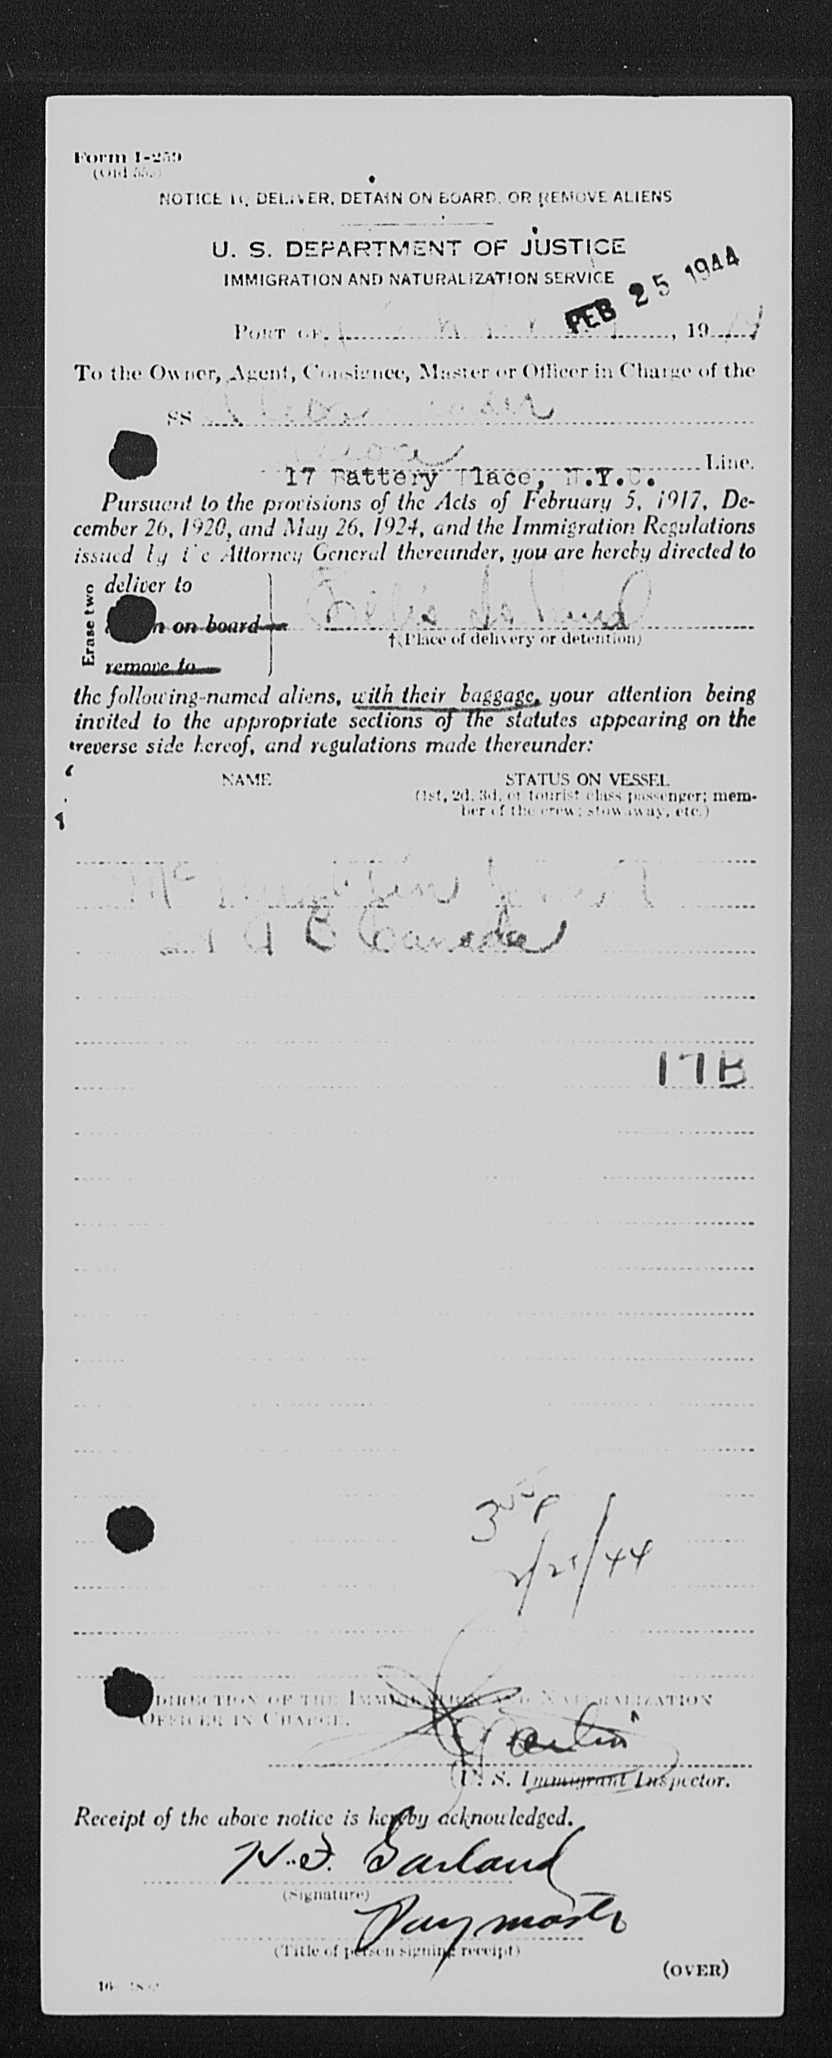 Form I-259
(Old 553)
NOTICE TO DELIVER, DETAIN ON BOARD, OR REMOVE ALIENS
U. S. DEPARTMENT OF JUSTICE
IMMIGRATION AND NATURALIZATION SERVICE
FEB 25 1944
PORT OF , 19
To the Owner, Agent, Consignee, Master or Officer in Charge of the
SS
Line.
17 Battery Place, N.Y.C.
Pursuant to the provisions of the Acts of February 5, 1917, De-
cember 26, 1920, and May 26, 1924, and the Immigration Regulations
issued by the Attorney General thereunder, you are hereby directed to
Erase two
deliver to
n on board
Ellis Island
†(Place of delivery or detention)
remove to
the following-named aliens, with their baggage, your attention being
invited to the appropriate sections of the statutes appearing on the
reverse side hereof, and regulations made thereunder:
NAME STATUS ON VESSEL
(1st, 2d, 3d, or tourist class passenger; mem-
ber of the crew; stowaway, etc.)
Mc
Canada
17B
2/25/44
DIRECTION OF THE IMMIGRATION AND NATURALIZATION
OFFICER IN CHARGE.
U. S. Immigrant Inspector.
Receipt of the above notice is hereby acknowledged.
H. F. Garland
(Signature)
Paymaster
(Title of person signing receipt)
(OVER)